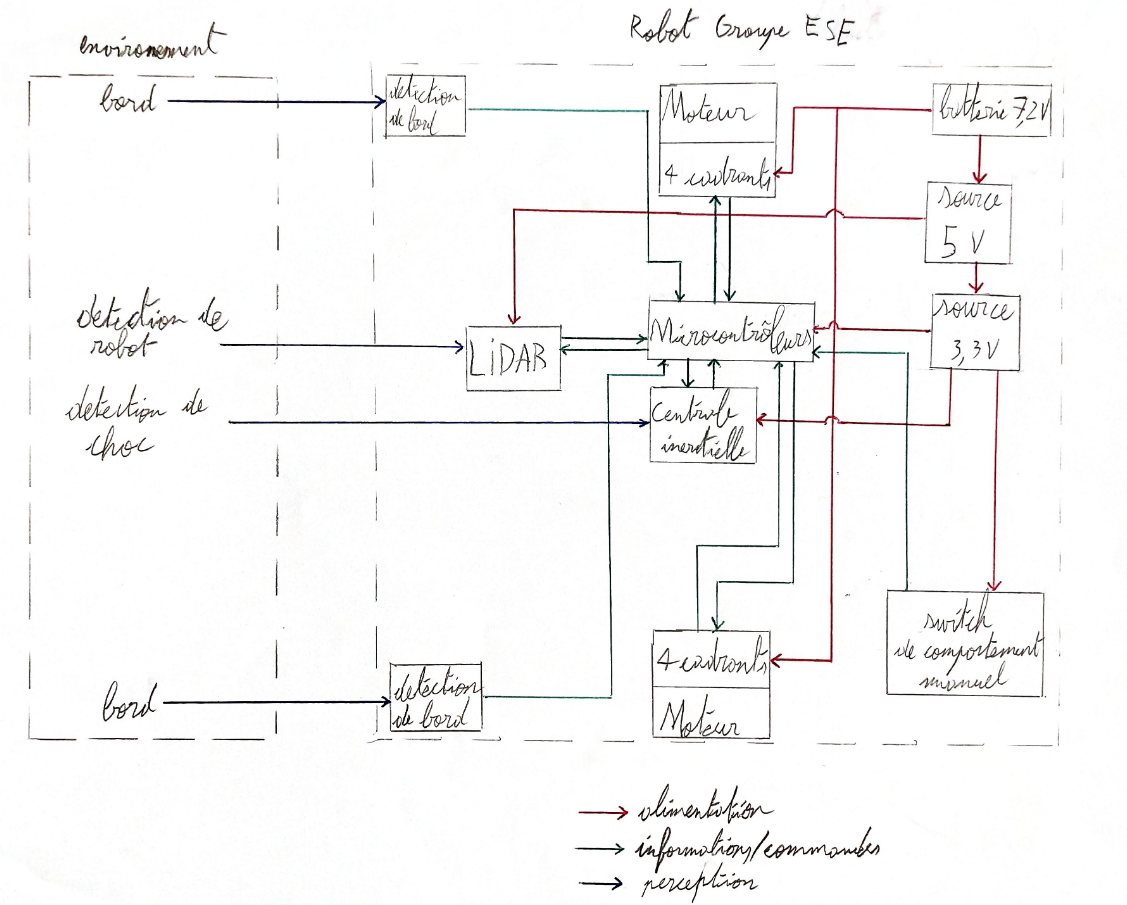 Robot Groupe ESE
environement
bord
détection
de bord
Moteur
4 cadrants
batterie 7,2V
source
5 V
détection de
robot
LiDAR
Microcontrôleurs
source
3,3V
détection de
choc
centrale
inertielle
switch
de comportement
manuel
4 cadrants
Moteur
bord
détection
de bord
alimentation
informations/commandes
perception